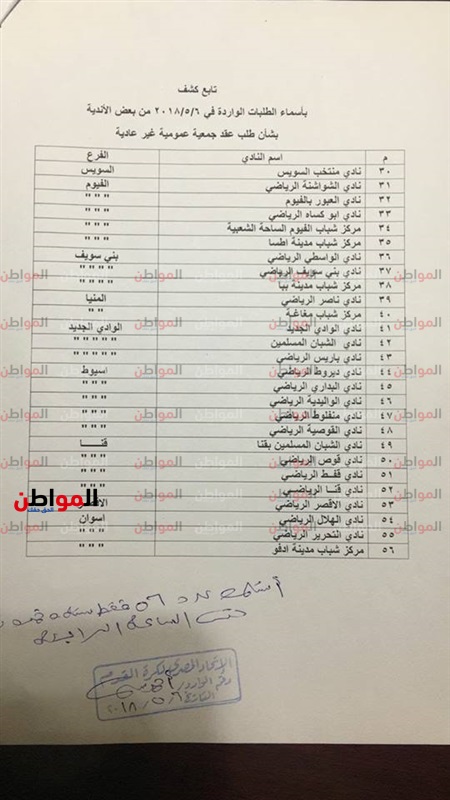 تابع كشف
بأسماء الطلبات الواردة في ٢٠١٨/٥/٦ من بعض الأندية
بشأن طلب عقد جمعية عمومية غير عادية
م اسم النادي الفرع
٣٠ نادي منتخب السويس السويس
٣١ نادي الشواشنة الرياضي الفيوم
٣٢ نادي العبور بالفيوم " " "
٣٣ نادي ابو كساه الرياضي " " "
٣٤ مركز شباب الفيوم الساحة الشعبية " " "
٣٥ مركز شباب مدينة اطسا " " "
٣٦ نادي الواسطي الرياضي بني سويف
٣٧ نادي بني سويف الرياضي " " " "
٣٨ مركز شباب مدينة ببا " " " "
٣٩ نادي ناصر الرياضي المنيا
٤٠ مركز شباب مغاغة " "
٤١ نادي الوادي الجديد الوادي الجديد
٤٢ نادي الشبان المسلمين " " " " "
٤٣ نادي باريس الرياضي " " " " "
٤٤ نادي ديروط الرياضي اسيوط
٤٥ نادي البداري الرياضي " " "
٤٦ نادي الواليدية الرياضي " " "
٤٧ نادي منفلوط الرياضي " " "
٤٨ نادي القوصية الرياضي " " "
٤٩ نادي الشبان المسلمين بقنا قنا
٥٠ نادي قوص الرياضي " " "
٥١ نادي قفط الرياضي " " "
٥٢ نادي قنا الرياضي " " "
٥٣ نادي الاقصر الرياضي
٥٤ نادي الهلال الرياضي اسوان
٥٥ نادي التحرير الرياضي " " "
٥٦ مركز شباب مدينة ادفو " " "
المواطن
عدد ٥٦ فقط ستة و
حتى الساعة الرابعة
الإتحاد المصري لكرة القدم
رقم الوارد
التاريخ ٢٠١٨/٥/٦